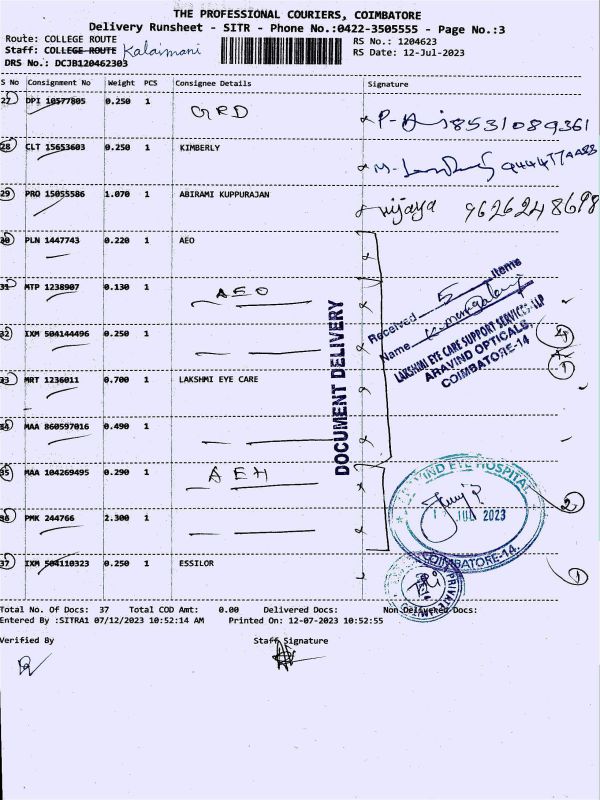 THE PROFESSIONAL COURIERS, COIMBATORE
Delivery Runsheet - SITR - Phone No.:0422-3505555 - Page No.:3
Route: COLLEGE ROUTE
RS No.: 1204623
Staff: COLLEGE ROUTE Kalaimani
RS Date: 12-Jul-2023
DRS No.: DCJB120462303
S No Consignment No Weight PCS Consignee Details Signature
27 DPI 10577805 0.250 1 GRD 18531089361
28 CLT 15653603 0.250 1 KIMBERLY
29 PRO 15055586 1.070 1 ABIRAMI KUPPURAJAN vijaya 9626248698
30 PLN 1447743 0.220 1 AEO
31 MTP 1238907 0.130 1 AEO
32 IXM 504144496 0.250 1
33 MRT 1236011 0.700 1 LAKSHMI EYE CARE
34 MAA 860597016 0.490 1
35 MAA 104269495 0.290 1 AEH
36 PMK 244766 2.300 1
37 IXM 504110323 0.250 1 ESSILOR
DOCUMENT DELIVERY
Received 5 Items
Name
LAKSHMI EYE CARE SUPPORT SERVICES LLP
ARAVIND OPTICALS,
COIMBATORE-14
1
ARAVIND EYE HOSPITAL
JUL 2023
COIMBATORE-14.
2
1
Total No. Of Docs: 37 Total COD Amt: 0.00 Delivered Docs: Non Delivered Docs:
Entered By :SITRA1 07/12/2023 10:52:14 AM Printed On: 12-07-2023 10:52:55
Verified By Staff Signature